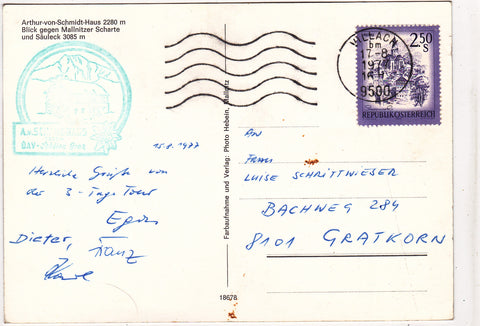 Arthur-von-Schmidt-Haus 2280 m
Blick gegen Mallnitzer Scharte
und Säuleck 3085 m
15.8.1977
Herzliche Grüße von
der 3-Tage Tour
Egon
Dieter, Franz
Farbaufnahme und Verlag: Photo Hebein, Mallnitz
18678
VILLACH
bm
-8.
1977
9500
2.50
S
REPUBLIK ÖSTERREICH
AN
FRAU
LUISE SCHRITTWIESER
BACHWEG 284
8101 GRATKORN